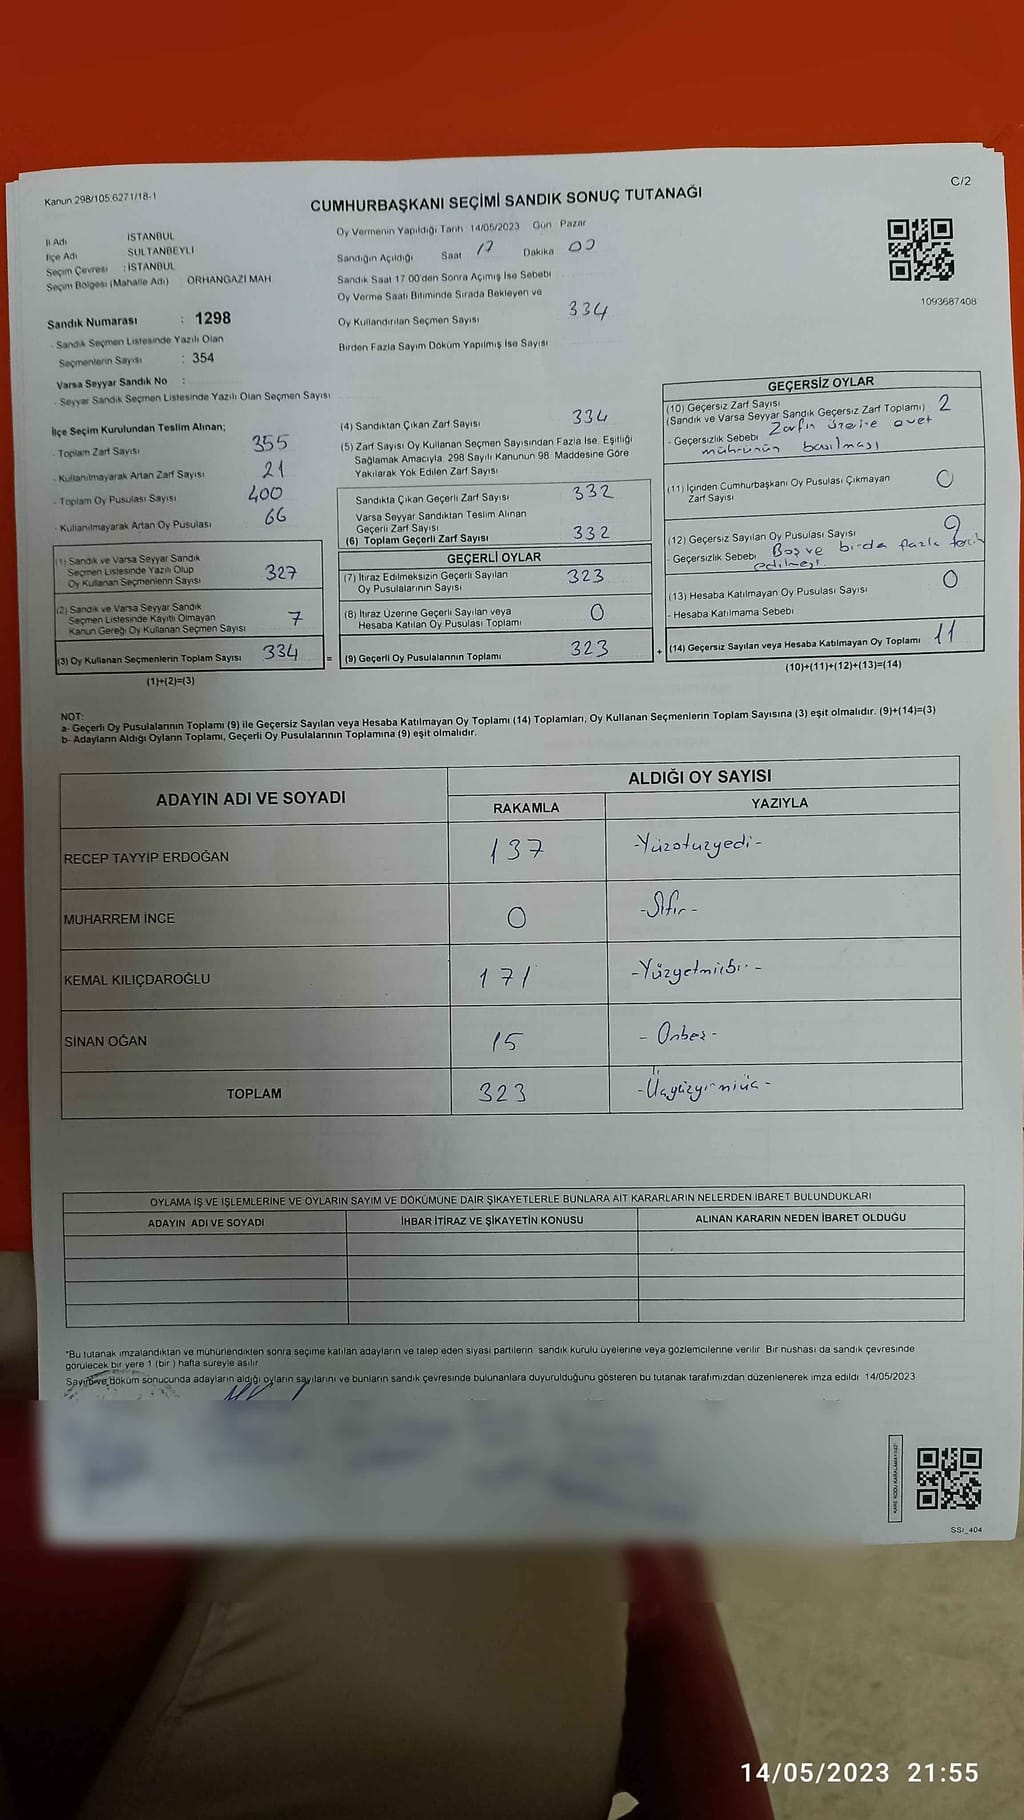 Kanun 298/105 6271/18-1
C/2
CUMHURBAŞKANI SEÇİMİ SANDIK SONUÇ TUTANAĞI
İl Adı İSTANBUL
İlçe Adı SULTANBEYLİ
Seçim Çevresi : İSTANBUL
Seçim Bölgesi (Mahalle Adı) ORHANGAZİ MAH
Sandık Numarası : 1298
- Sandık Seçmen Listesinde Yazılı Olan
Seçmenlerin Sayısı : 354
Varsa Seyyar Sandık No :
- Seyyar Sandık Seçmen Listesinde Yazılı Olan Seçmen Sayısı
Oy Vermenin Yapıldığı Tarih 14/05/2023 Gün Pazar
Sandığın Açıldığı Saat 17 Dakika 00
Sandık Saat 17 00'den Sonra Açımış İse Sebebi
Oy Verme Saati Bitiminde Sırada Bekleyen ve
Oy Kullandırılan Seçmen Sayısı 334
Birden Fazla Sayım Döküm Yapılmış İse Sayısı
1093687408
İlçe Seçim Kurulundan Teslim Alınan;
- Toplam Zarf Sayısı 355
- Kullanılmayarak Artan Zarf Sayısı 21
- Toplam Oy Pusulası Sayısı 400
- Kullanılmayarak Artan Oy Pusulası 66
(1) Sandık ve Varsa Seyyar Sandık
Seçmen Listesinde Yazılı Olup
Oy Kullanan Seçmenlerin Sayısı 327
(2) Sandık ve Varsa Seyyar Sandık
Seçmen Listesinde Kayıtlı Olmayan
Kanun Gereği Oy Kullanan Seçmen Sayısı 7
(3) Oy Kullanan Seçmenlerin Toplam Sayısı 334
(1)+(2)=(3)
(4) Sandıktan Çıkan Zarf Sayısı 334
(5) Zarf Sayısı Oy Kullanan Seçmen Sayısından Fazla İse, Eşitliği
Sağlamak Amacıyla, 298 Sayılı Kanunun 98 Maddesine Göre
Yakılarak Yok Edilen Zarf Sayısı
Sandıkta Çıkan Geçerli Zarf Sayısı 332
Varsa Seyyar Sandıktan Teslim Alınan
Geçerli Zarf Sayısı
(6) Toplam Geçerli Zarf Sayısı 332
GEÇERLİ OYLAR
(7) İtiraz Edilmeksizin Geçerli Sayılan
Oy Pusulalarının Sayısı 323
(8) İtiraz Üzerine Geçerli Sayılan veya
Hesaba Katılan Oy Pusulası Toplamı 0
= (9) Geçerli Oy Pusulalarının Toplamı 323
GEÇERSİZ OYLAR
(10) Geçersiz Zarf Sayısı
(Sandık ve Varsa Seyyar Sandık Geçersiz Zarf Toplamı) 2
- Geçersizlik Sebebi Zarfın üzerine evet
mührünün basılması
(11) İçinden Cumhurbaşkanı Oy Pusulası Çıkmayan
Zarf Sayısı 0
(12) Geçersiz Sayılan Oy Pusulası Sayısı 9
- Geçersizlik Sebebi Boş ve birda fazla tercih
edilmesi
(13) Hesaba Katılmayan Oy Pusulası Sayısı 0
- Hesaba Katılmama Sebebi
+ (14) Geçersiz Sayılan veya Hesaba Katılmayan Oy Toplamı 11
(10)+(11)+(12)+(13)=(14)
NOT:
a- Geçerli Oy Pusulalarının Toplamı (9) ile Geçersiz Sayılan veya Hesaba Katılmayan Oy Toplamı (14) Toplamları, Oy Kullanan Seçmenlerin Toplam Sayısına (3) eşit olmalıdır. (9)+(14)=(3)
b- Adayların Aldığı Oyların Toplamı, Geçerli Oy Pusulalarının Toplamına (9) eşit olmalıdır.
ADAYIN ADI VE SOYADI
ALDIĞI OY SAYISI
RAKAMLA YAZIYLA
RECEP TAYYİP ERDOĞAN 137 -Yüzotuzyedi-
MUHARREM İNCE 0 -Sıfır-
KEMAL KILIÇDAROĞLU 171 -Yüzyetmişbir-
SİNAN OĞAN 15 -Onbeş-
TOPLAM 323 -Üçyüzyirmiüç-
OYLAMA İŞ VE İŞLEMLERİNE VE OYLARIN SAYIM VE DÖKÜMÜNE DAİR ŞİKAYETLERLE BUNLARA AİT KARARLARIN NELERDEN İBARET BULUNDUKLARI
ADAYIN ADI VE SOYADI İHBAR İTİRAZ VE ŞİKAYETİN KONUSU ALINAN KARARIN NEDEN İBARET OLDUĞU
*Bu tutanak imzalandıktan ve mühürlendikten sonra seçime katılan adayların ve talep eden siyasi partilerin sandık kurulu üyelerine veya gözlemcilerine verilir Bir nüshası da sandık çevresinde
görülecek bir yere 1 (bir ) hafta süreyle asılır
Sayım ve döküm sonucunda adayların aldığı oyların sayılarını ve bunların sandık çevresinde bulunanlara duyurulduğunu gösteren bu tutanak tarafımızdan düzenlenerek imza edildi 14/05/2023
SSi_404
14/05/2023 21:55